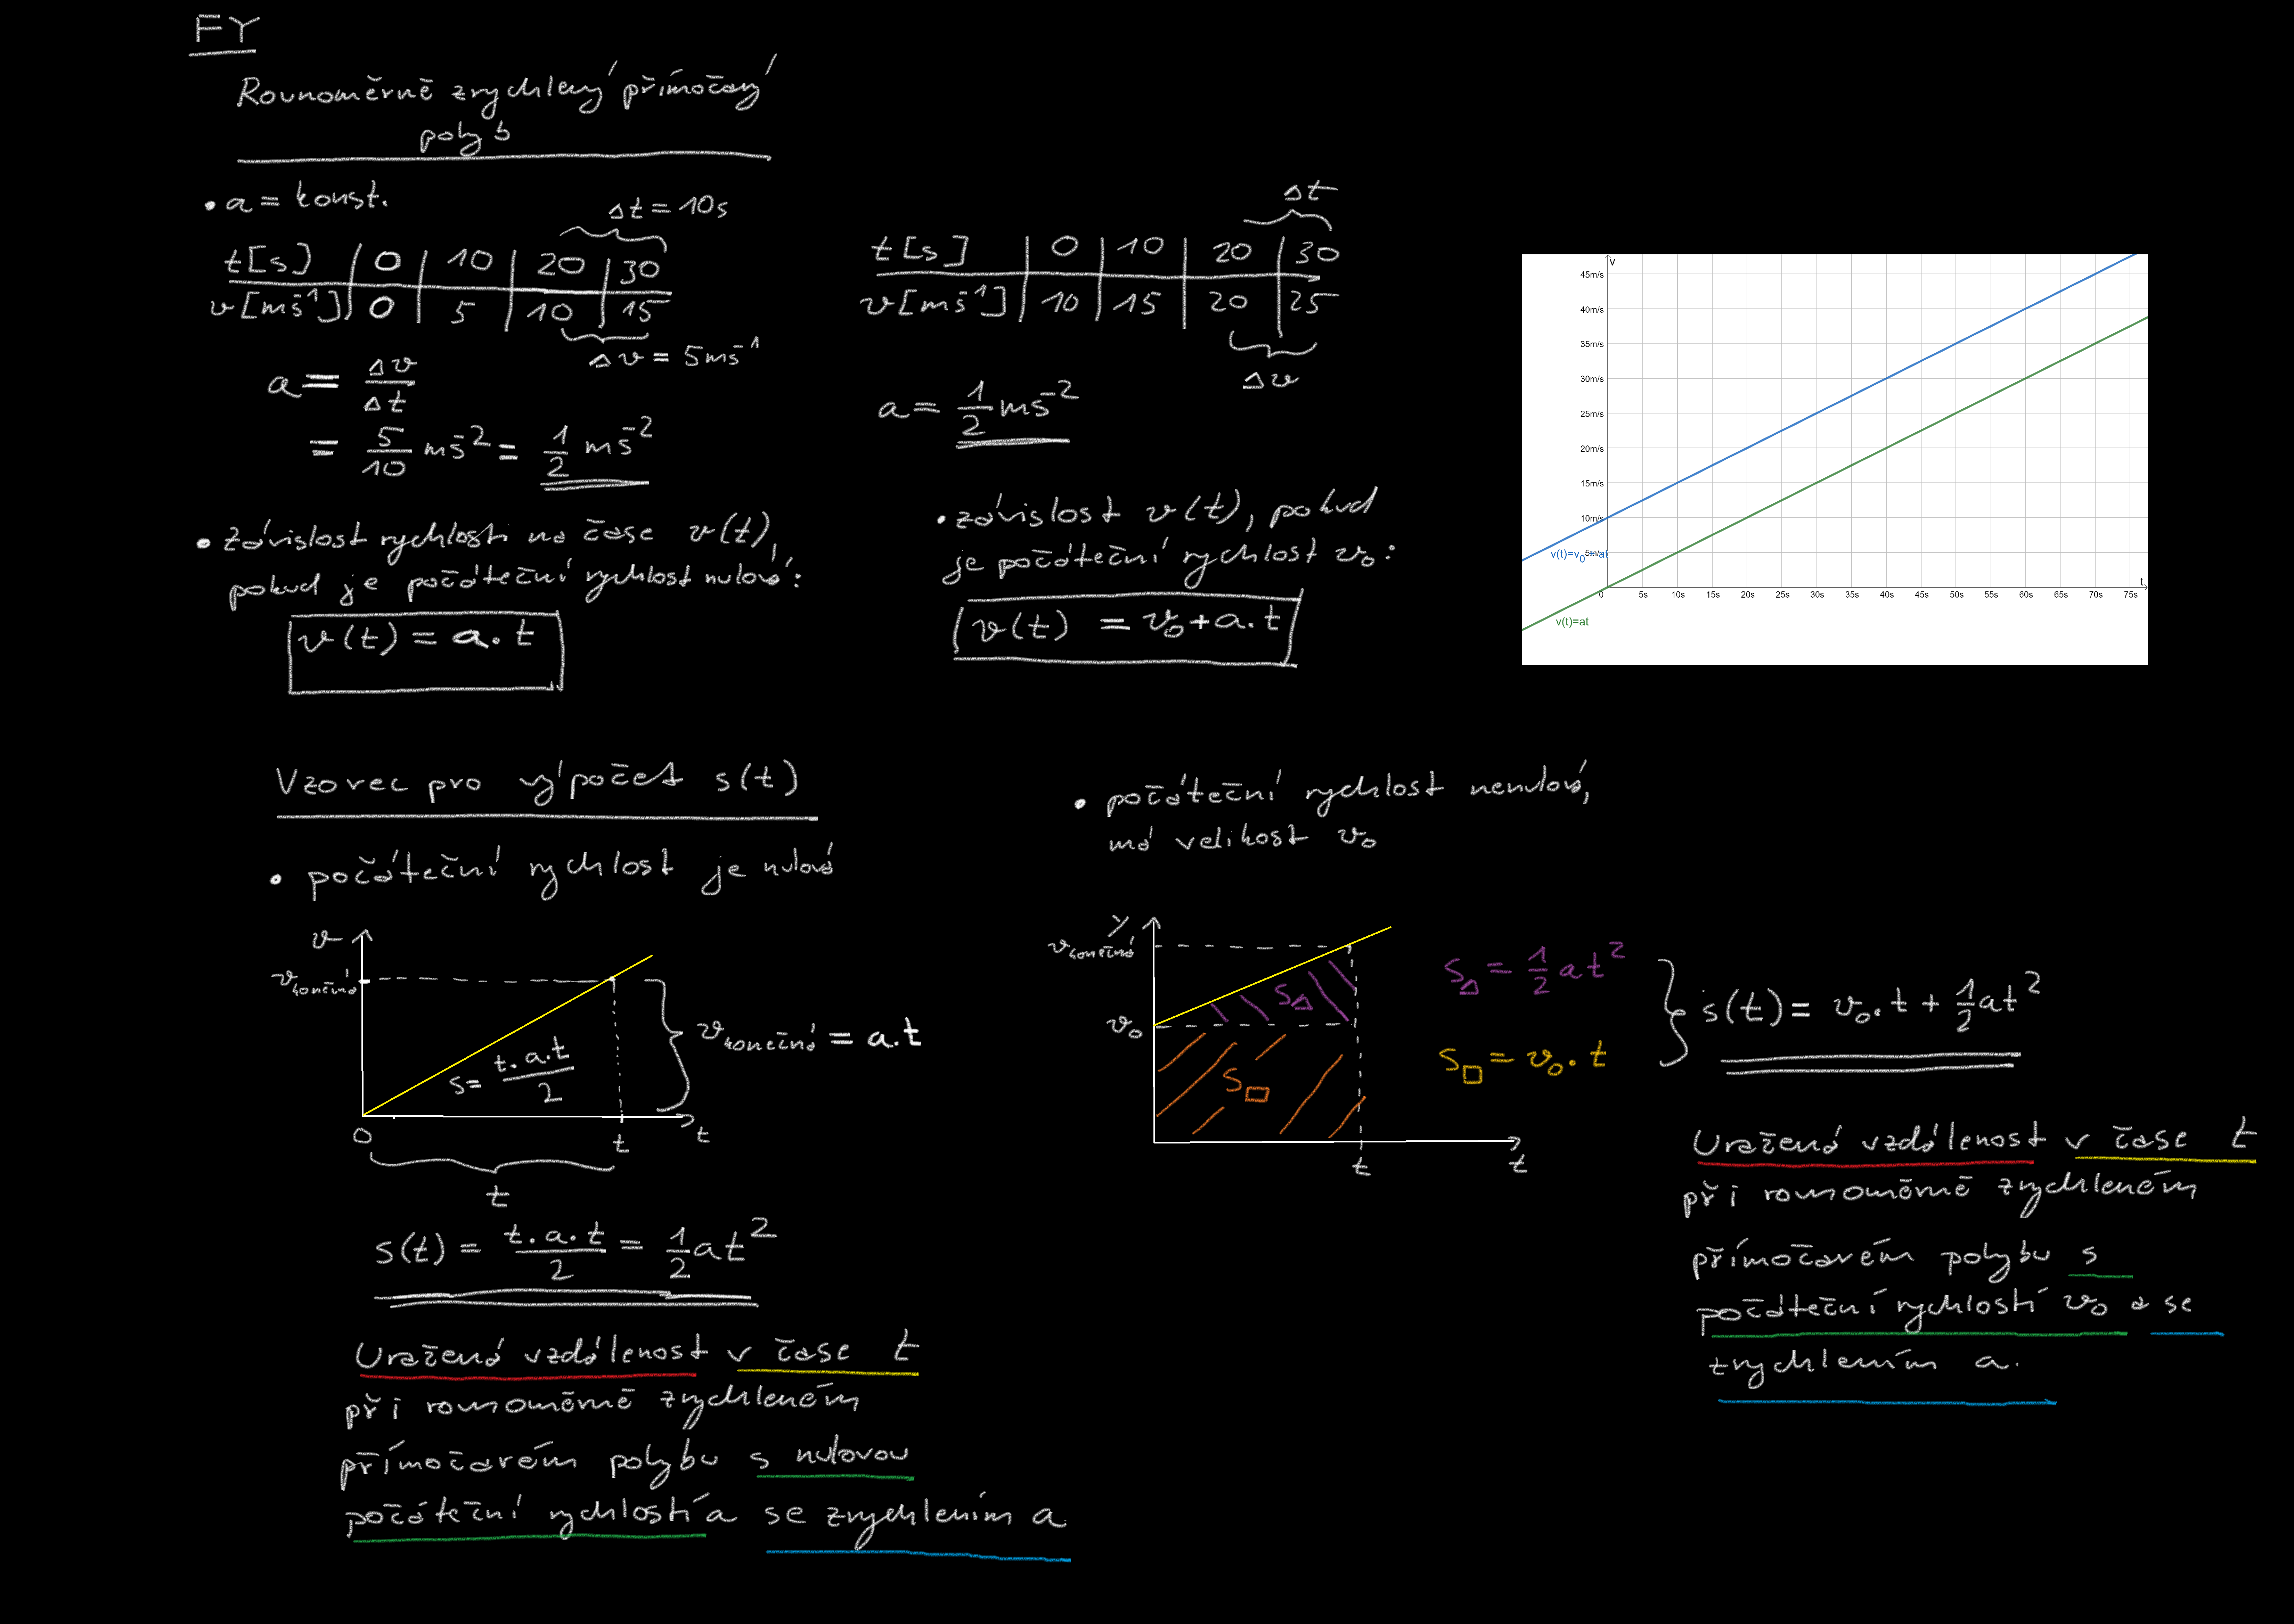 FY
Rovnoměrně zrychlený přímočarý
pohyb
• a = konst.
Δt = 10s
t[s] | 0 | 10 | 20 | 30
v[ms⁻¹] | 0 | 5 | 10 | 15
Δv = 5ms⁻¹
a = Δv/Δt
= 5/10 ms⁻² = 1/2 ms⁻²
• závislost rychlosti na čase v(t),
pokud je počáteční rychlost nulová:
v(t) = a.t
Δt
t[s] | 0 | 10 | 20 | 30
v[ms⁻¹] | 10 | 15 | 20 | 25
Δv
a = 1/2 ms⁻²
• závislost v(t), pokud
je počáteční rychlost v₀:
v(t) = v₀+a.t
v
45m/s
40m/s
35m/s
30m/s
25m/s
20m/s
15m/s
10m/s
5m/s
v(t)=v₀+at
t
0 5s 10s 15s 20s 25s 30s 35s 40s 45s 50s 55s 60s 65s 70s 75s
v(t)=at
Vzorec pro výpočet s(t)
• počáteční rychlost je nulová
v
v konečná
v konečná = a.t
s= t.a.t/2
0
t
t
t
s(t) = t.a.t/2 = 1/2at²
Uražená vzdálenost v čase t
při rovnoměrně zrychleném
přímočarém pohybu s nulovou
počáteční rychlostí a se zrychlením a
• počáteční rychlost nenulová,
má velikost v₀
v konečná
v₀
S△
S□
t
t
S△ = 1/2 at²
S□ = v₀. t
s(t) = v₀.t + 1/2at²
Uražená vzdálenost v čase t
při rovnoměrně zrychleném
přímočarém pohybu s
počáteční rychlostí v₀ a se
zrychlením a.